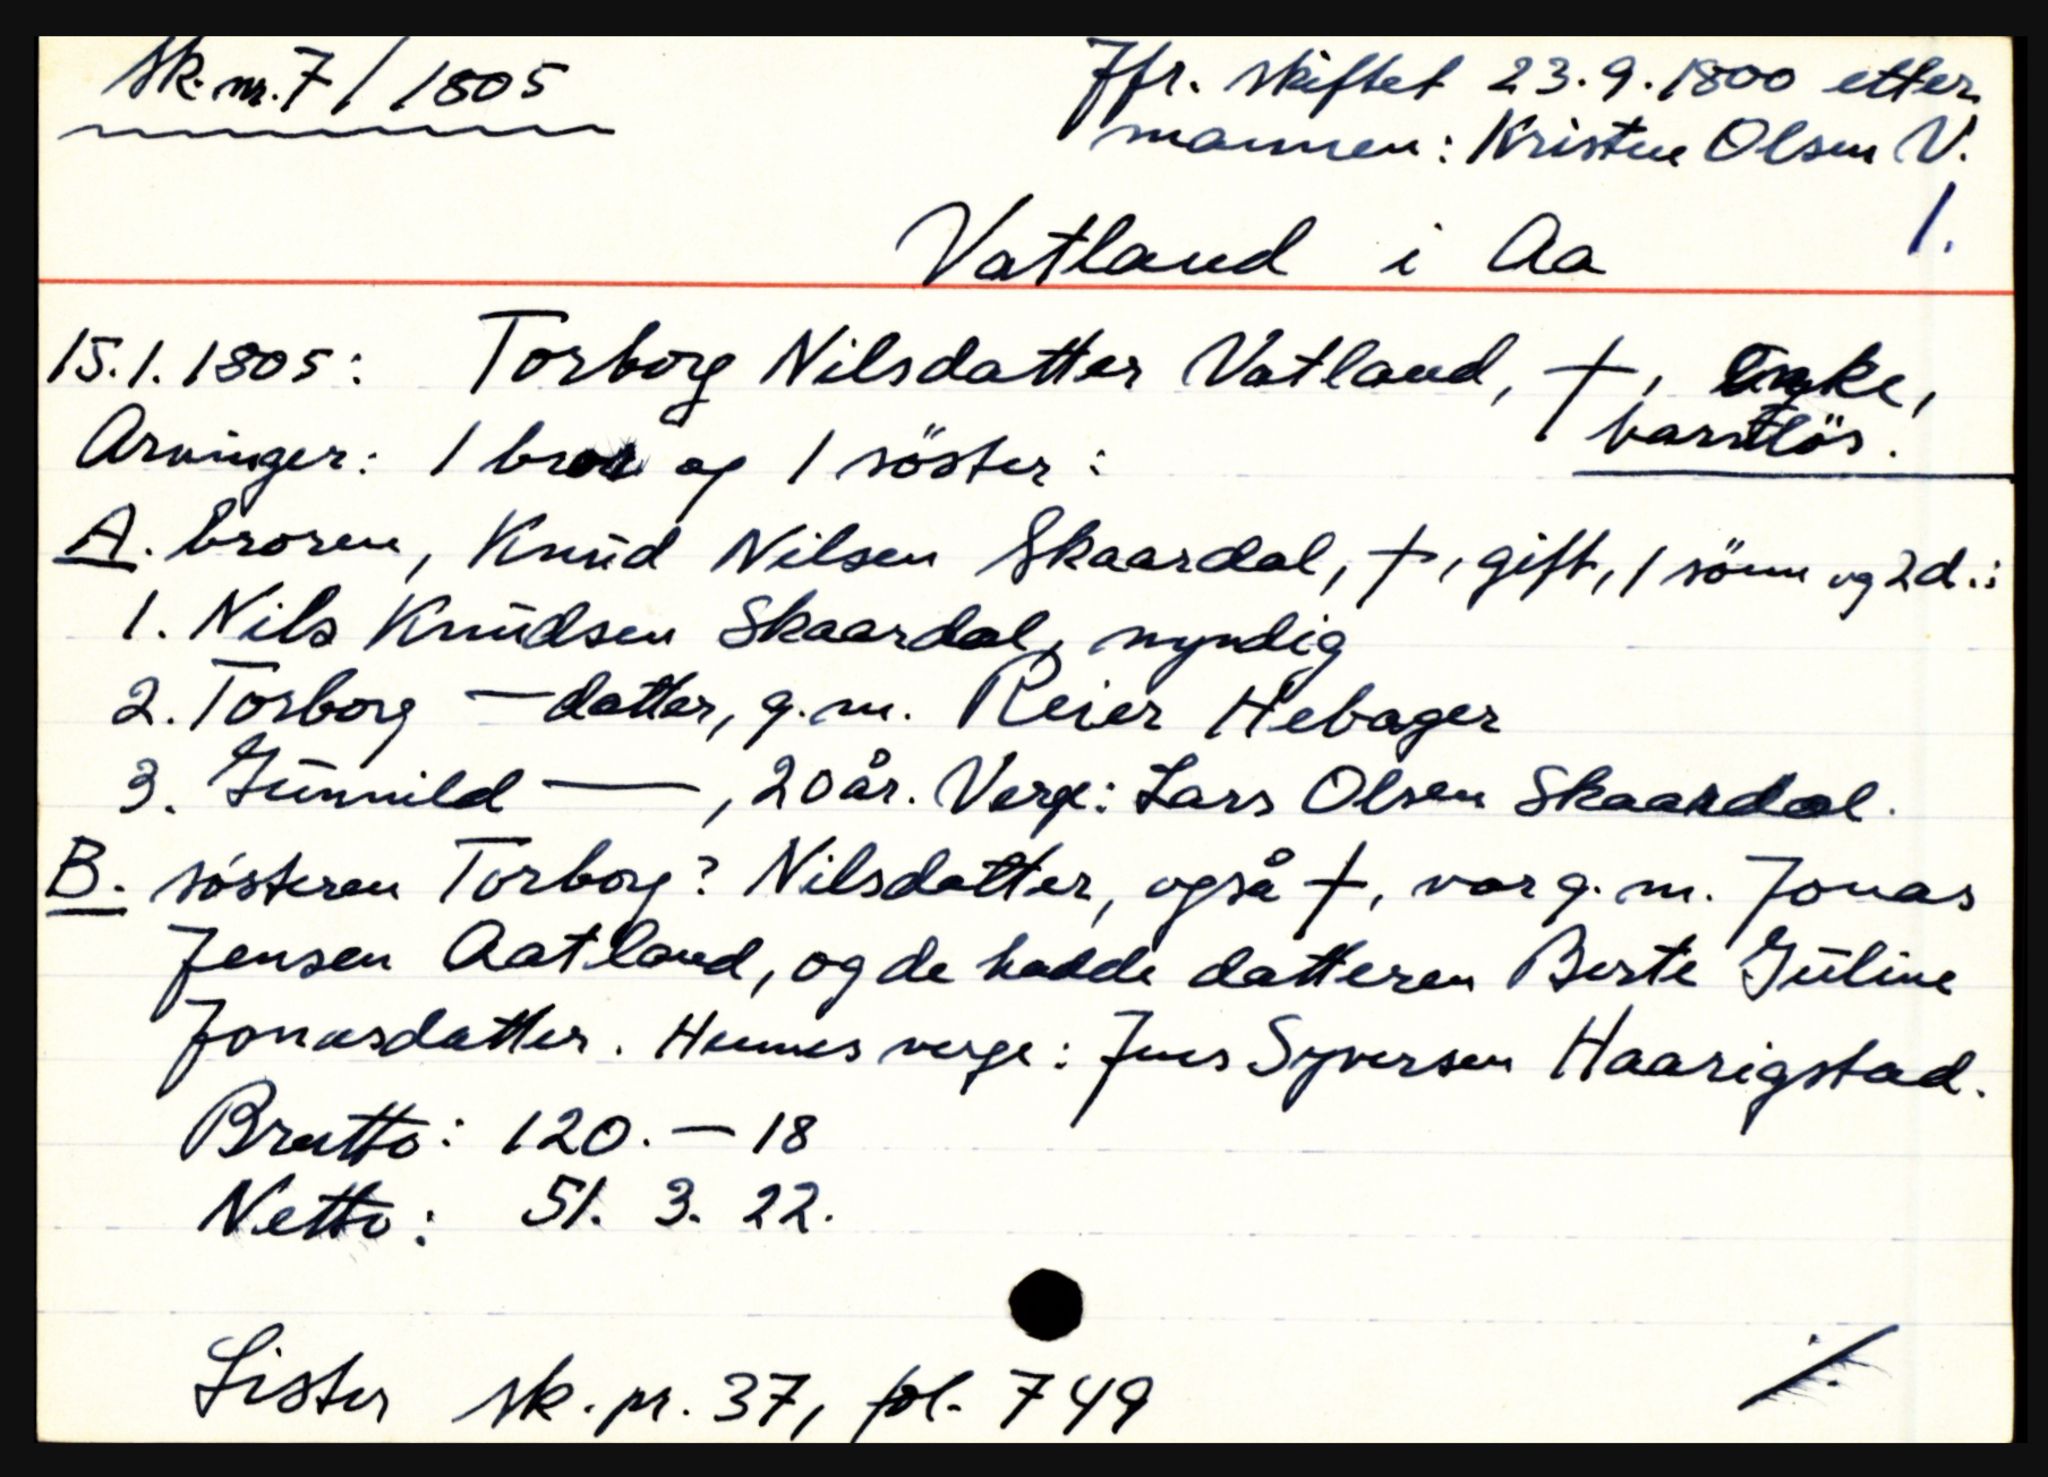 Sk. nr. 7/1805
Jfr. skiftet 23.9.1800 etter
mannen: Kristen Olsen V.
1.
Vatland i Aa
15.1.1805: Torborg Nilsdatter Vatland, †, Enke,
barnlös.
Arvinger: 1 bror og 1 söster:
A. broren, Knud Nilsen Skaardal, †, gift, 1 sönn og 2 d.:
1. Nils Knudsen Skaardal, myndig
2. Torborg —datter, g.m. Reier Hebager
3. Gunnild —, 20 år. Verge: Lars Olsen Skaardal.
B. sösteren Torborg? Nilsdatter, også †, var g.m. Jonas
Jensen Aatland, og de hadde datteren Berte Guline
Jonasdatter. Hennes verge: Jens Syversen Haarigstad.
Brutto: 120. — 18
Netto: 51. 3. 22.
Lister sk. pr. 37, fol. 749
./.